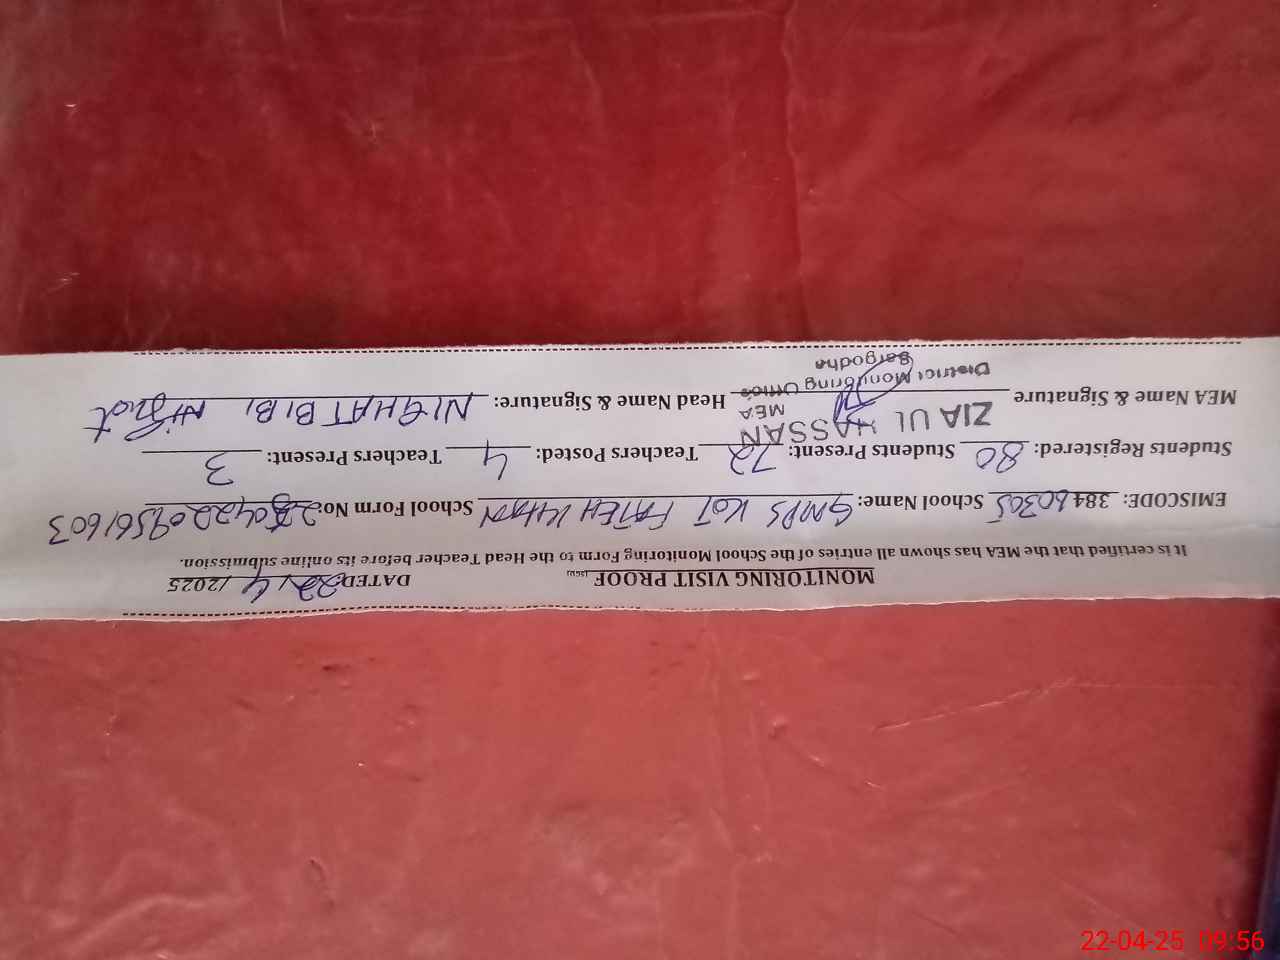 MONITORING VISIT PROOF (SGD) DATED 22/4/2025
It is certified that the MEA has shown all entries of the School Monitoring Form to the Head Teacher before its online submission.
EMISCODE: 38460305 School Name: GMPS KOT FATEH KHAN School Form No:
Students Registered: 80 Students Present: 72 Teachers Posted: 4 Teachers Present: 3
MEA Name & Signature ZIA UL HASSAN Head Name & Signature: NIGHAT BIBI
MEA
District Monitoring Office
Sargodha
22-04-25 09:56